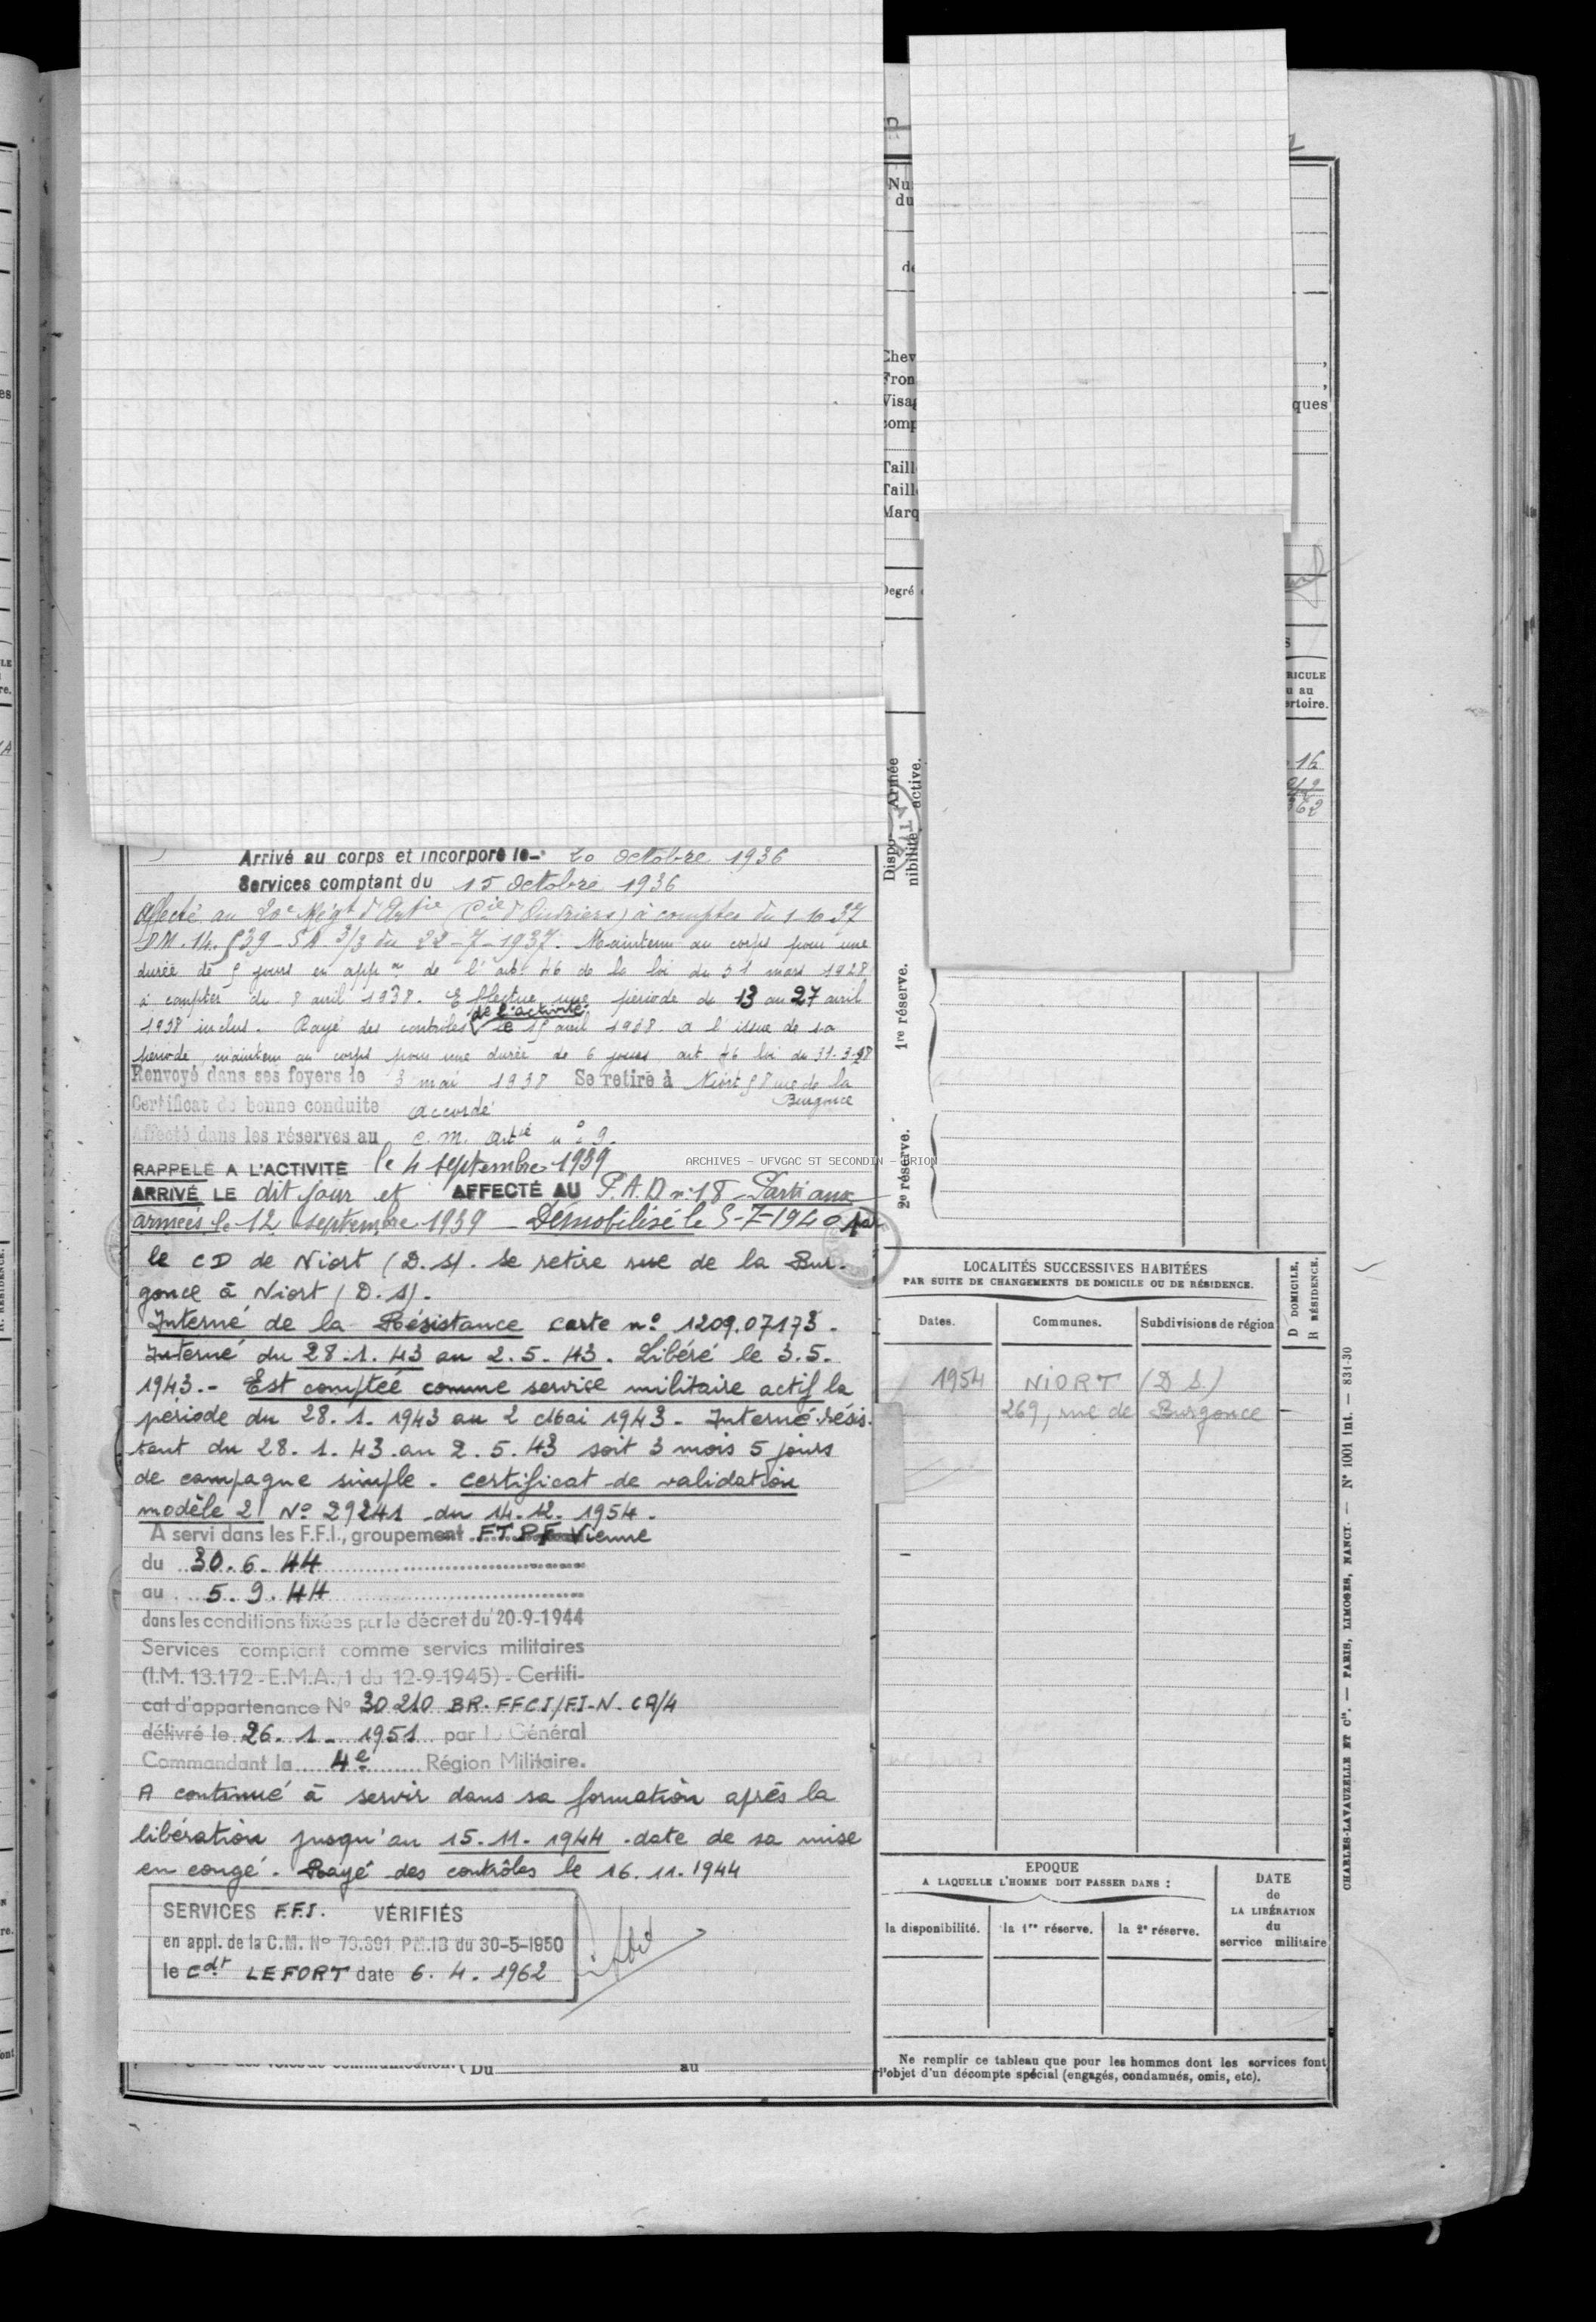 Arrivé au corps et incorporé le 20 octobre 1936
Services comptant du 15 octobre 1936
Affecté au 20e Régt d'Artie (Cie d'Ouvriers) à compter du 1-10-37
D.M. 14.539-5A 3/3 du 22-7-1937. Maintenu au corps pour une
durée de 5 jours en appon de l'art. 46 de la loi du 31 mars 1928
à compter du 8 avril 1938. Effectue une période du 13 au 27 avril
de l'activité
1938 inclus. Rayé des contrôles le 15 avril 1938. a l'issue de sa
période, maintenu au corps pour une durée de 6 jours, art. 46 loi du 31-3-28
Renvoyé dans ses foyers le 3 mai 1938 Se retire à Niort 58 rue de la
Burgonce
Certificat de bonne conduite accordé
Affecté dans les réserves au c.m. artie n° 9.
RAPPELÉ A L'ACTIVITÉ le 4 septembre 1939
ARCHIVES - UFVGAC ST SECONDIN - BRION
ARRIVÉ LE dit jour et AFFECTÉ AU P.A.D n° 18 - Parti aux
armées le 12 septembre 1939 - Démobilisé le 5-7-1940 par
le CD de Niort (D.S). Se retire rue de la Bur-
gonce à Niort (D.S).
Interné de la Résistance carte n° 1209.07173.
Interné du 28.1.43 au 2.5.43. Libéré le 3.5.
1943.- Est comptée comme service militaire actif la
période du 28.1.1943 au 2 Mai 1943 - Interné résis-
tant du 28.1.43 au 2.5.43 soit 3 mois 5 jours
de campagne simple - certificat de validation
modèle 2 N° 29241 du 14.12.1954.
A servi dans les F.F.I., groupement F.T.P.F Vienne
du 30.6.44
au 5.9.44
dans les conditions fixées par le décret du 20-9-1944
Services comptant comme servics militaires
(I.M. 13.172-E.M.A./1 du 12-9-1945)-Certifi-
cat d'appartenance N° 30210 BR.FFCI/FI-N.CA/4
délivré le 26.1-1951 par le Général
Commandant la 4e Région Militaire.
A continué à servir dans sa formation après la
libération jusqu'au 15.11.1944 date de sa mise
en congé. Rayé des contrôles le 16.11.1944
SERVICES F.F.I. VÉRIFIÉS
en appl. de la C.M. N° 70.391 PM.1B du 30-5-1950
le Cdt LEFORT date 6.4.1962
Du au
Nu
du
de
Chev
Fron
Visag
comp
Taill
Taill
Marq
Degré
ques
RICULE
u au
ertoire.
16
362
Armée
active.
Dispo-
nibilité.
1re réserve.
2e réserve.
LOCALITÉS SUCCESSIVES HABITÉES
PAR SUITE DE CHANGEMENTS DE DOMICILE OU DE RÉSIDENCE.
D DOMICILE,
R RÉSIDENCE.
Dates. Communes. Subdivisions de région
1954 NIORT (D S)
269, rue de Burgonce
EPOQUE
A LAQUELLE L'HOMME DOIT PASSER DANS :
la disponibilité. la 1re réserve. la 2e réserve.
DATE
de
LA LIBÉRATION
du
service militaire
Ne remplir ce tableau que pour les hommes dont les services font
l'objet d'un décompte spécial (engagés, condamnés, omis, etc).
CHARLES-LAVAUZELLE ET Cie. — PARIS, LIMOGES, NANCY. — N° 1001 int. — 831-30